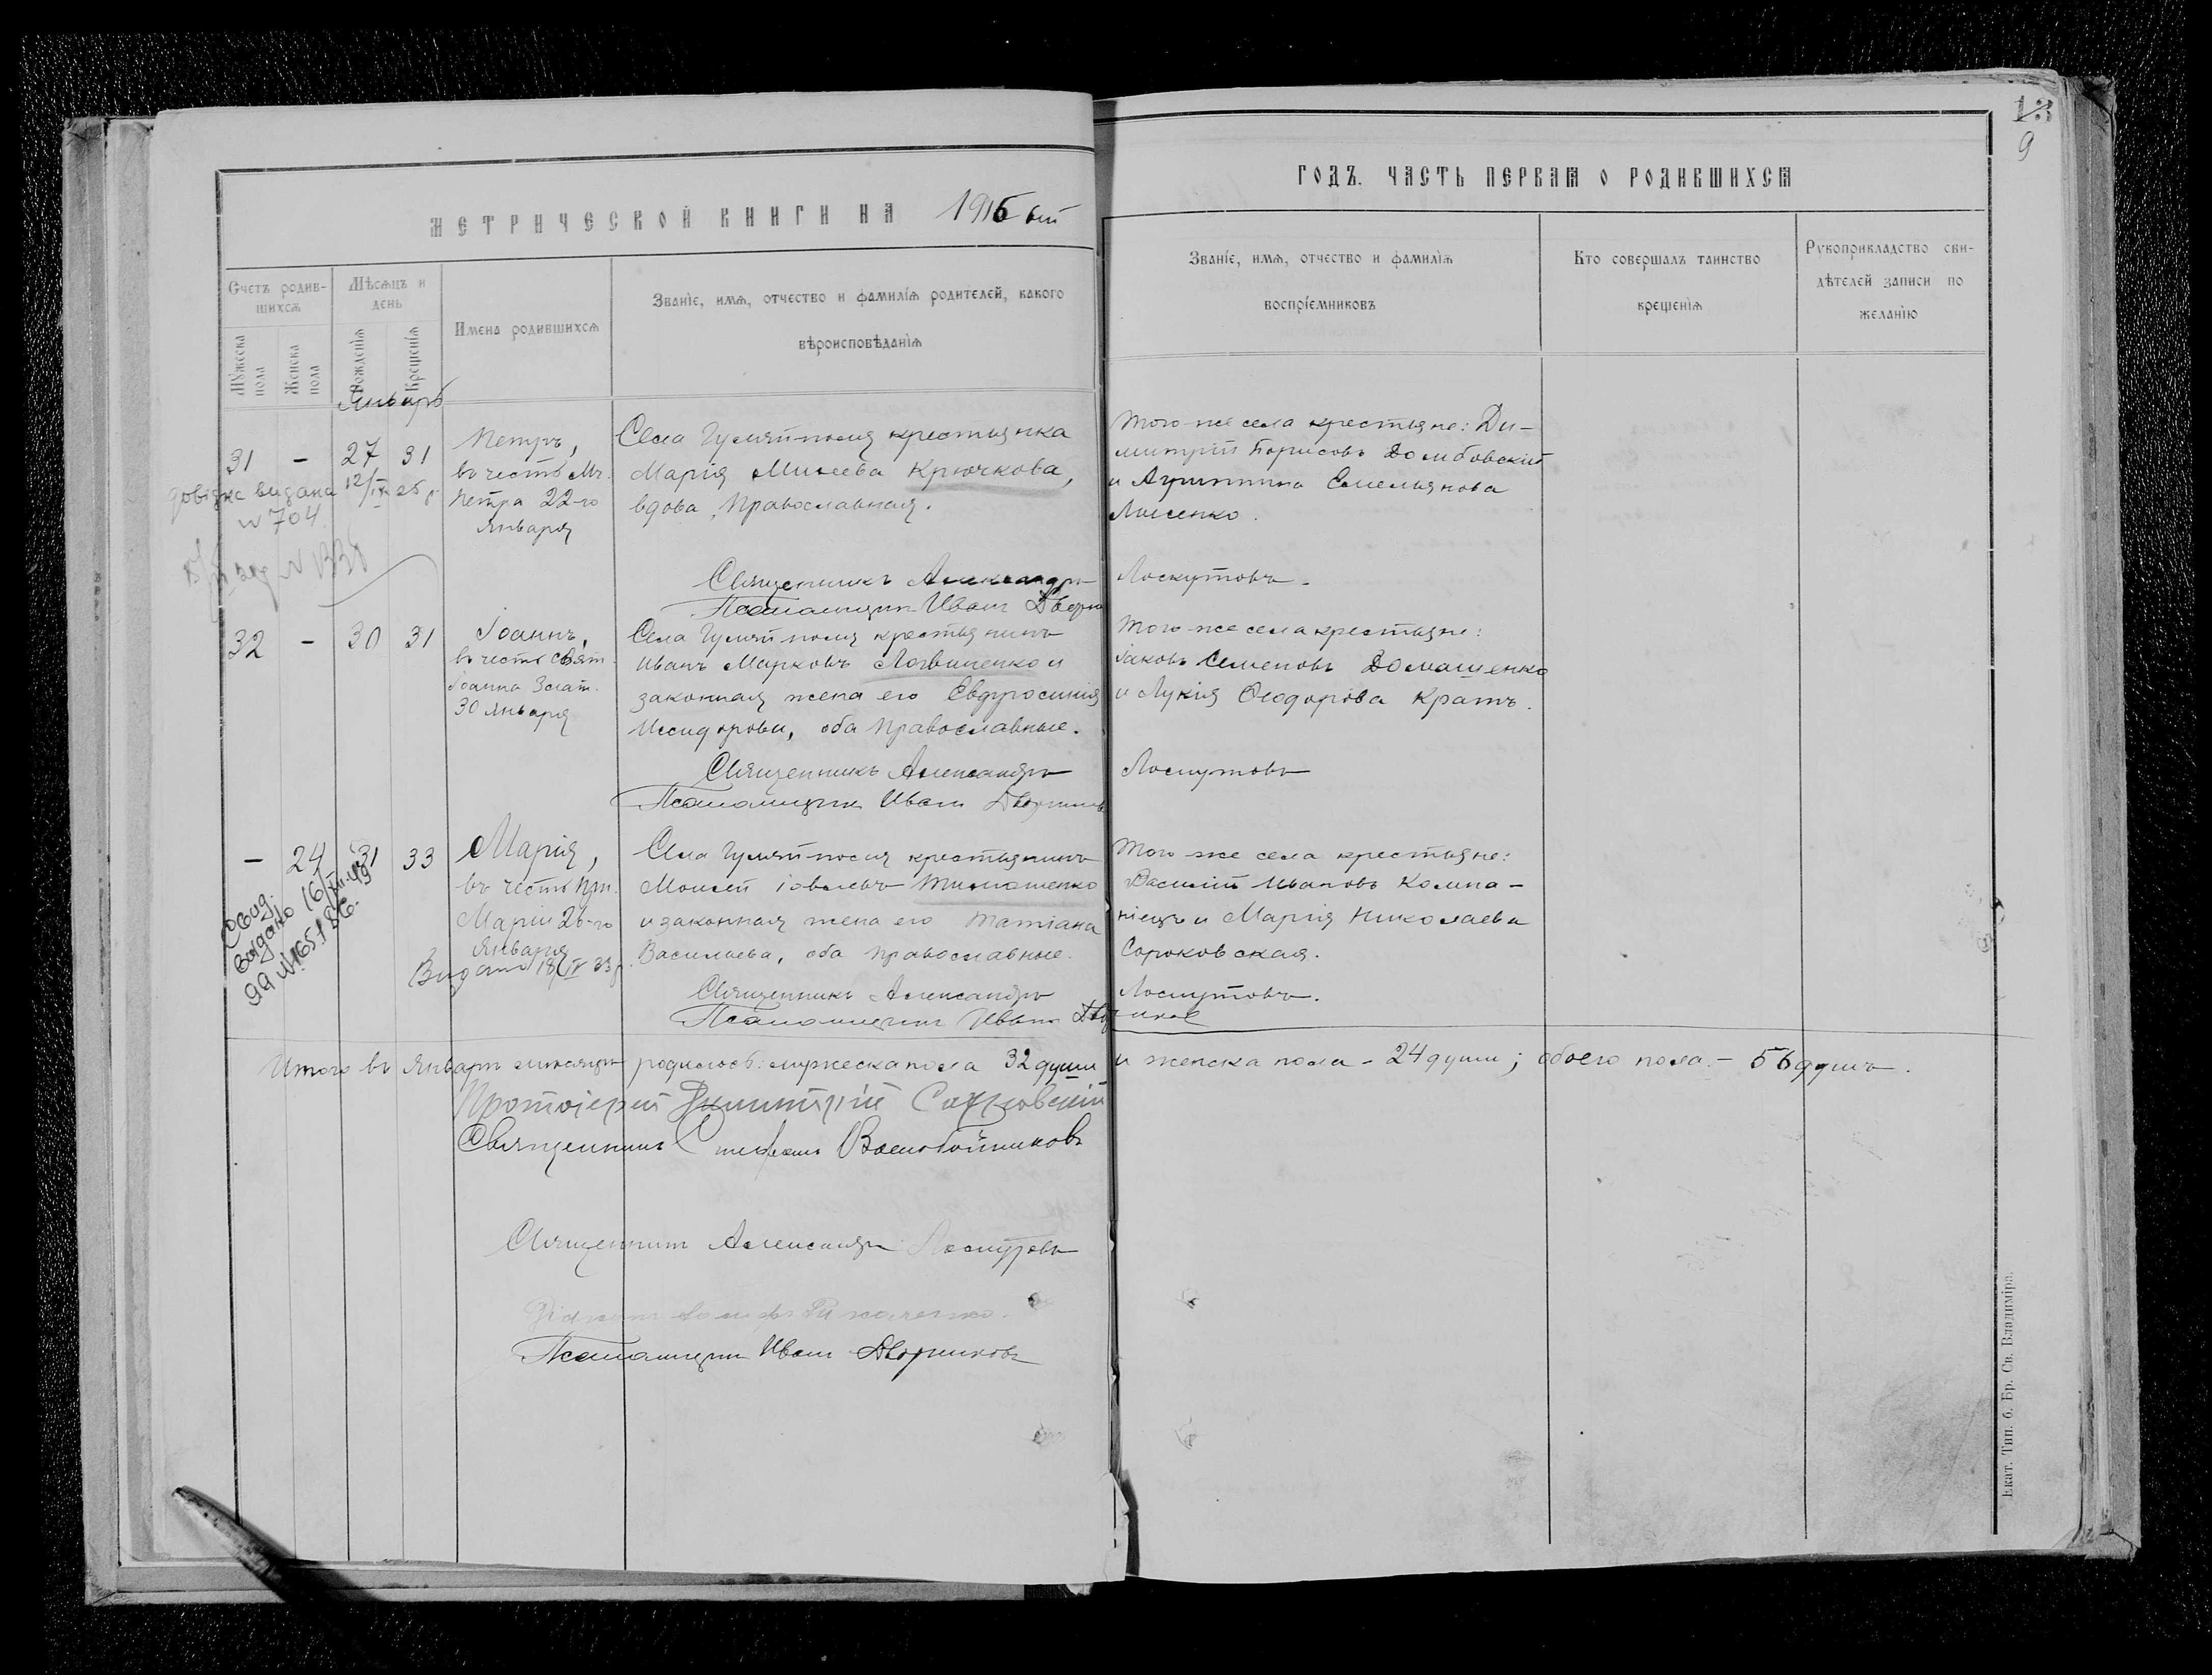 13
9
МЕТРИЧЕСКОЙ КНИГИ НА 1916 ый
ГОДЪ. ЧАСТЬ ПЕРВАЯ О РОДИВШИХСЯ
Счетъ родив-
шихся
Мужеска пола
Женска пола
Мѣсяцъ и
день
Рожденія
Крещенія
Имена родившихся
Званіе, имя, отчество и фамилія родителей, какого
вѣроисповѣданія
Званіе, имя, отчество и фамилія
воспріемниковъ
Кто совершалъ таинство
крещенія
Рукоприкладство сви-
дѣтелей записи по
желанію
Январь
31 - 27 31
Петръ,
въ честь Мч.
Петра 22-го
Января
довідка видана 12/IX 25 р
№ 704
Села Гуляй-поля крестьянка
Марія Михеева Крючкова,
вдова, Православная.
Того же села крестьяне: Ди-
митрій Борисовъ Домбовский
и Агриппина Емельянова
Лисенко.
Священникъ Александръ Лоскутовъ.
Псаломщикъ Иванъ Дворни
32 - 30 31
Іоаннъ,
въ честь Свят.
Іоанна Злат.
30 Января
Села Гуляй поля крестьянинъ
Иванъ Марковъ Логвиненко и
законная жена его Евфросинія
Исидорова, оба Православные.
Того же села крестьяне:
Іаковъ Семеновъ Домашенко
и Лукія Ѳеодорова Кратъ.
Священникъ Александръ Лоскутовъ
Псаломщикъ Иванъ Дворников
- 24 31 33
Марія,
въ честь Прп.
Маріи 26-го
Января
Свид.
Выдано 16/
Видано 18/IV 33 р.
Села Гуляй-поля крестьянинъ
Моисей Іовлевъ Тимошенко
и законная жена его Татіана
Васильева, оба Православные.
Того же села крестьяне:
Василій Ивановъ Компа-
ніецъ и Марія Николаева
Сороковская.
Священникъ Александръ Лоскутовъ.
Псаломщикъ Иванъ Дворников
Итого въ Январѣ мѣсяцѣ родилось: мужеска пола 32 души и женска пола - 24 души; обоего пола - 56 душъ.
Протоіерей Димитрій
Священникъ Стефанъ Воскобойниковъ
Священникъ Александръ Лоскутовъ
Псаломщикъ Иванъ Дворниковъ
Екат. Тип. б. Бр. Св. Владиміра.